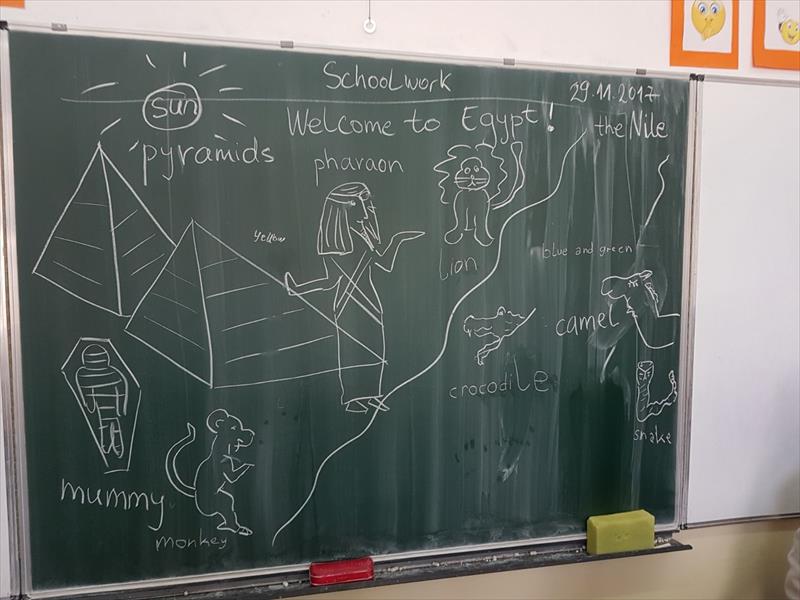 Schoolwork
29.11.2017
sun
Welcome to Egypt!
the Nile
pyramids
pharaon
yellow
lion
blue and green
camel
crocodile
snake
mummy
monkey